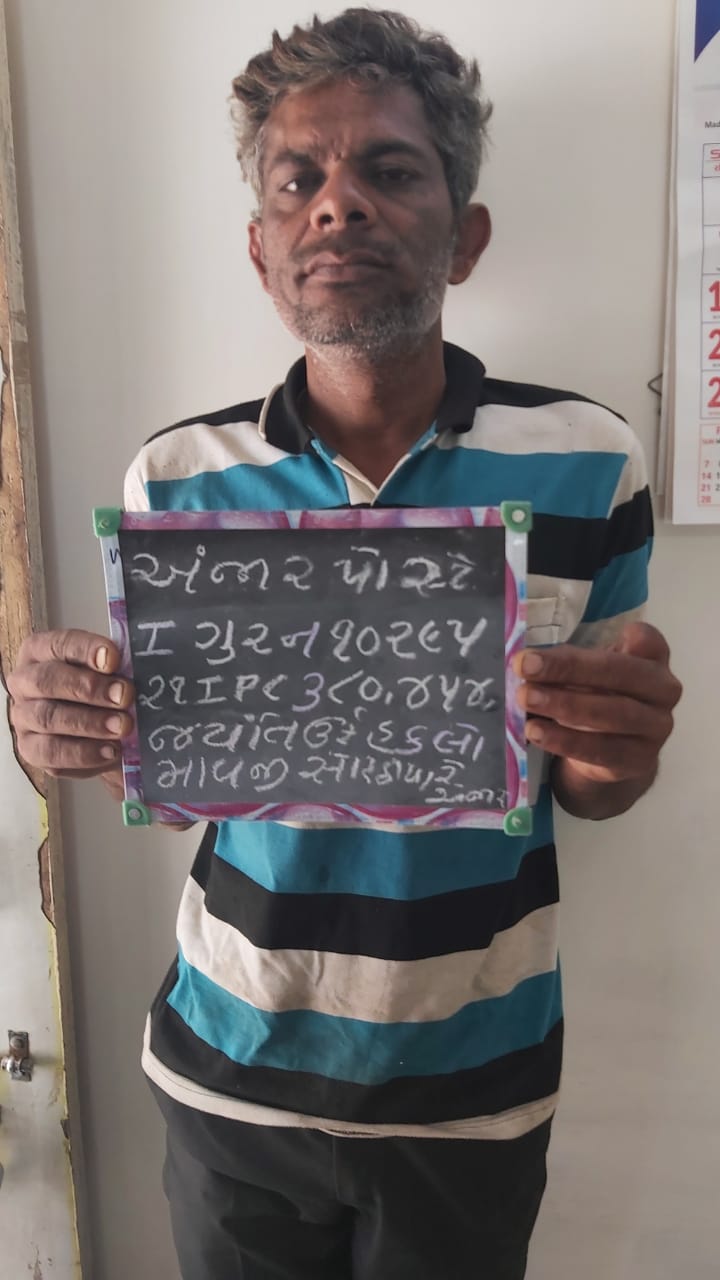 અંજાર પોસ્ટે
I ગુરન ૧૦૨૯૫
૨૧ IPC ૩૮૦,૪૫૪,
જયંતિ ઉર્ફે હકલો
માવજી સોરઠીયા રે
અંજાર
Mad
7
14
21
28